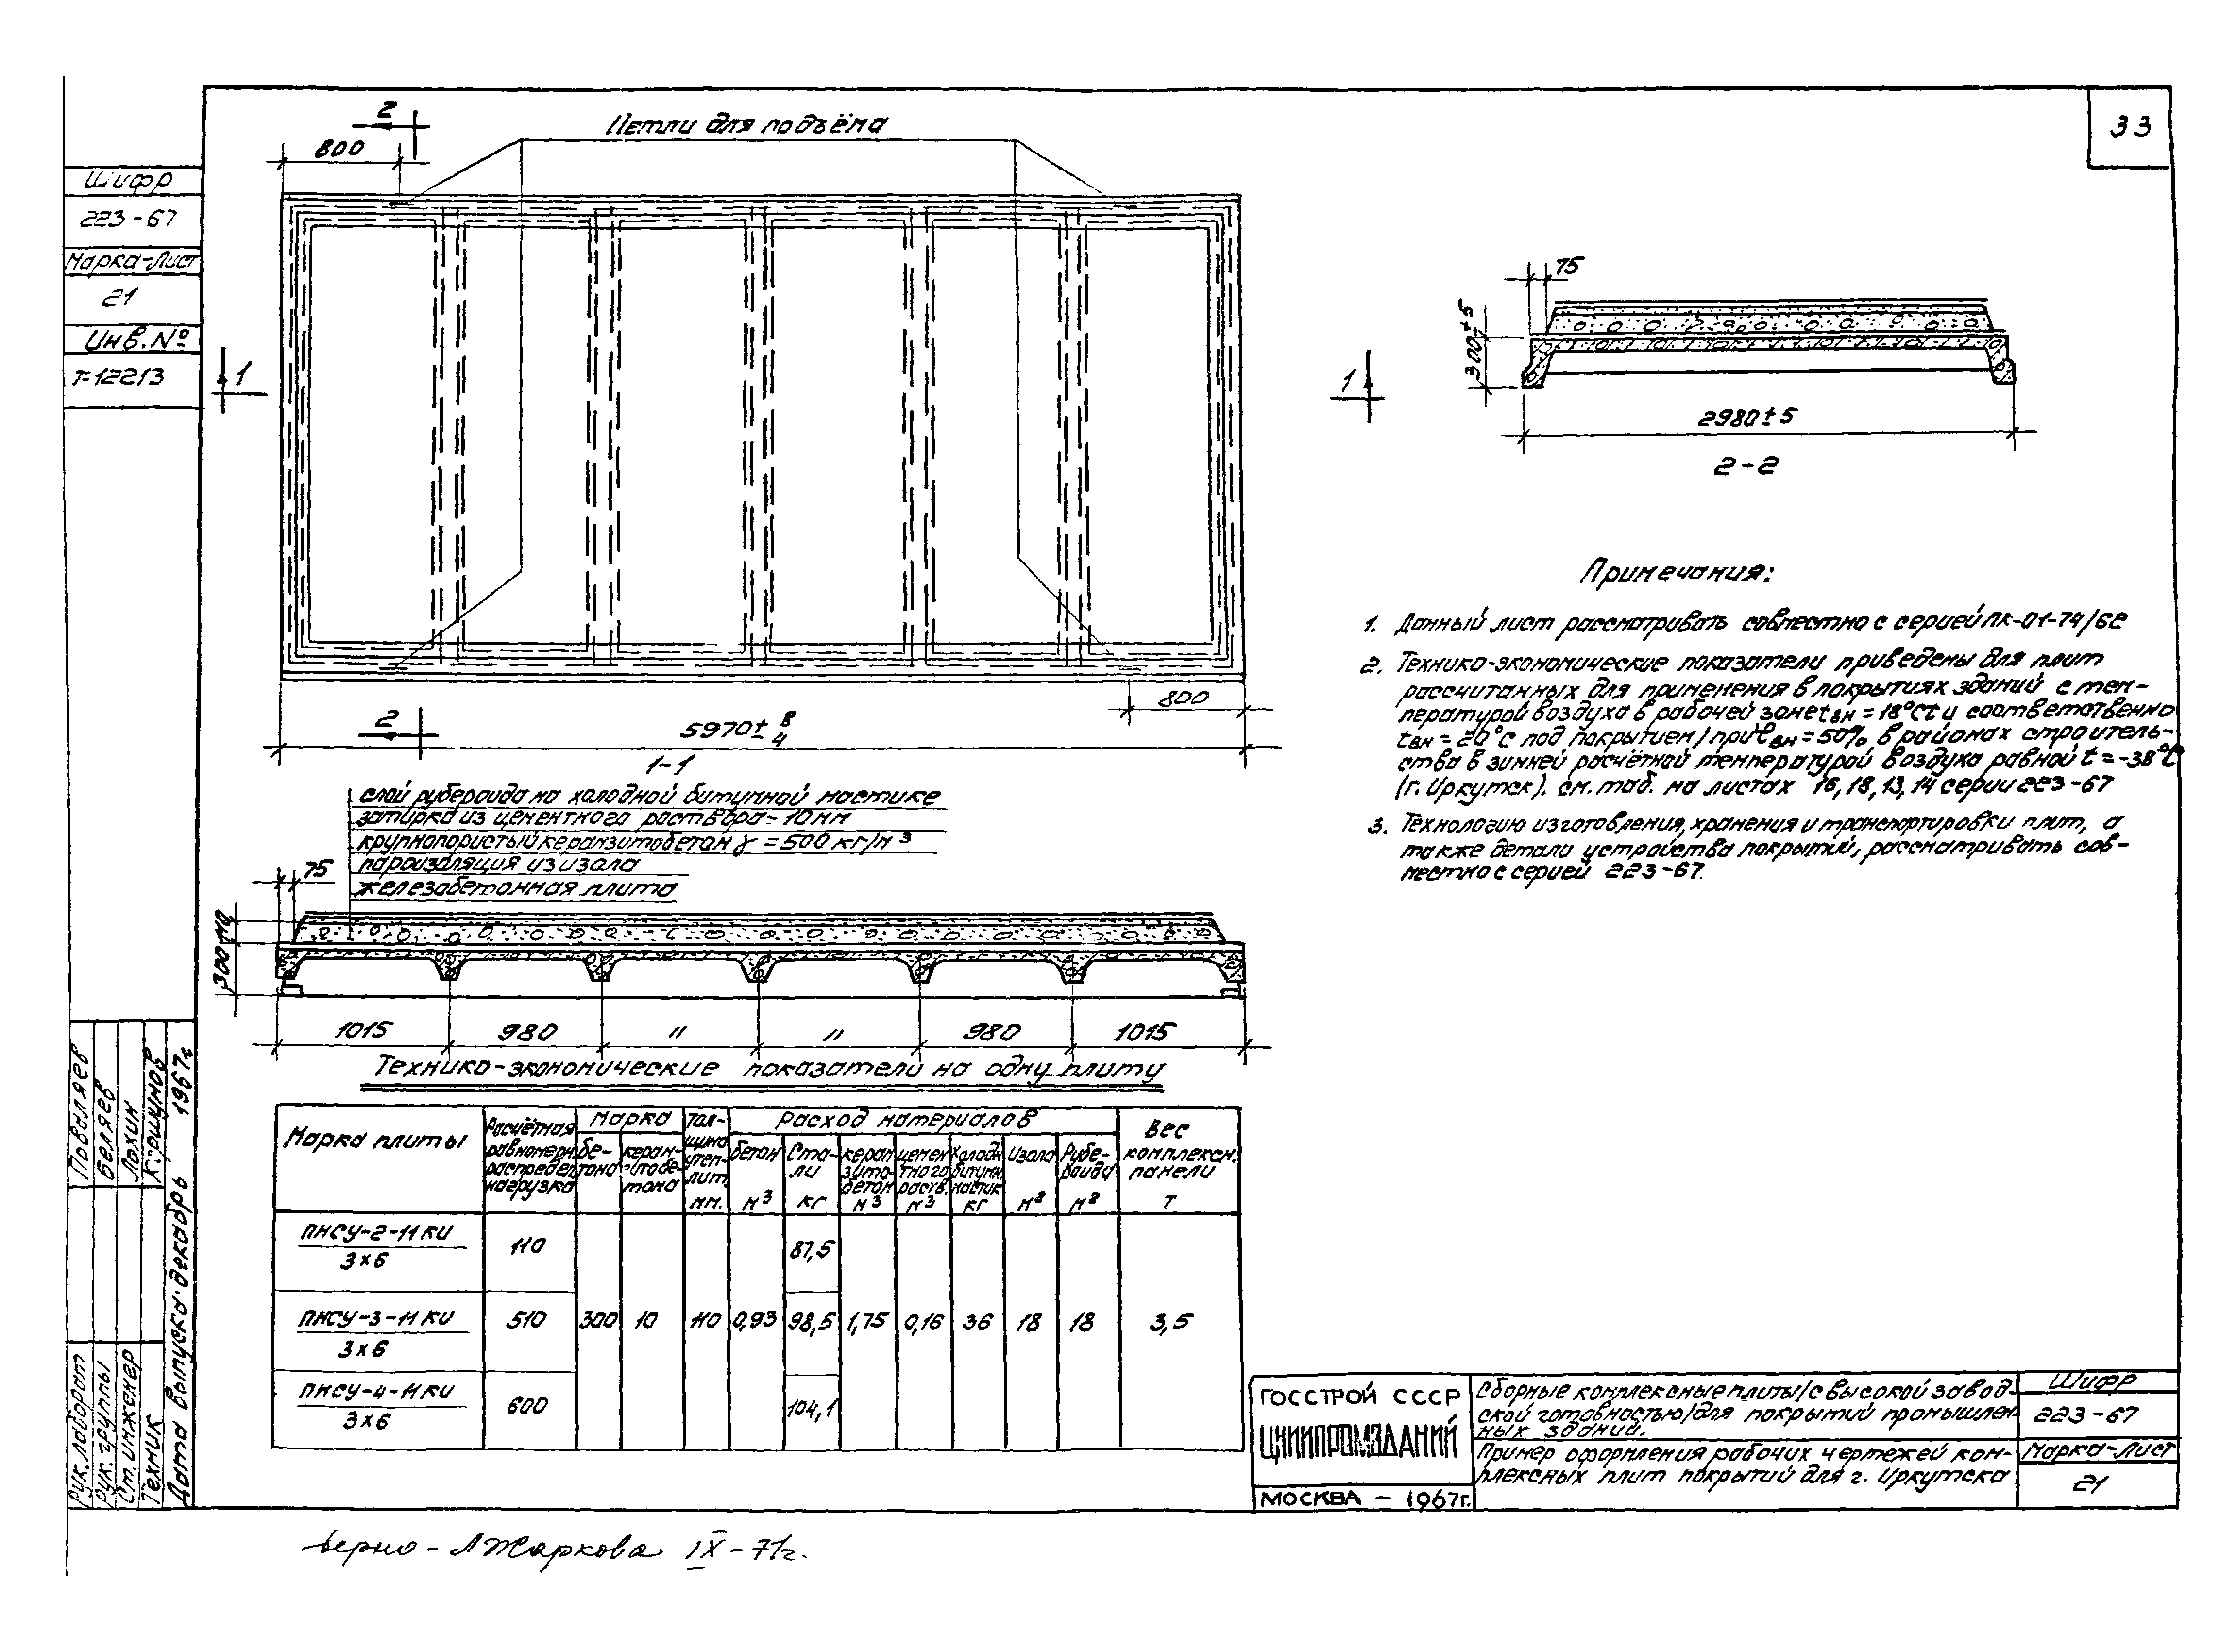 33
Шифр
223-67
Марка-Лист
21
Инв. №
Т-12213
Петли для подъёма
2
800
1
1
2
800
5970± 8/4
75
300±5
2980±5
2-2
1-1
слой рубероида на холодной битумной мастике
затирка из цементного раствора-10мм
крупнопористый керамзитобетон γ=500кг/м³
пароизоляция из изола
железобетонная плита
75
110
300
1015 980 " " 980 1015
Примечания:
1. Данный лист рассматривать совместно с серией ПК-01-74/62
2. Технико-экономические показатели приведены для плит
рассчитанных для применения в покрытиях зданий с тем-
пературой воздуха в рабочей зоне tвн=18°С и соответственно
tвн=20°С под покрытием/при вн=50% в районах строитель-
ства в зимней расчётной температурой воздуха равной t=-38°С
(г. Иркутск). см. таб. на листах 16,18,13,14 серии 223-67
3. Технологию изготовления, хранения и транспортировки плит, а
также детали устройства покрытий, рассматривать сов-
местно с серией 223-67.
Технико-экономические показатели на одну плиту
Марка плиты
Расчётная равномерн распредел нагрузка
Марка
бе-тона
керам-зитобе-тона
Тол-щина утеп-лит. мм.
Расход материалов
бетон м³
Ста-ли кг
керам зито-бетон м³
цемен тного раств. м³
Холодн битумн. мастик кг
Изола м²
Рубе-роида м²
Вес комплексн. панели т
ПНСУ-2-11КИ
3×6
110 87,5
ПНСУ-3-11КИ
3×6
510 300 10 110 0,93 98,5 1,75 0,16 36 18 18 3,5
ПНСУ-4-11КИ
3×6
600 104,1
Поваляев
Беляев
Лохин
Рук. лаборат
Рук. группы
Ст. инженер
Техник
Дата выпуска: декабрь 1967г
ГОССТРОЙ СССР
ЦНИИПРОМЗДАНИЙ
МОСКВА - 1967г.
Сборные комплексные плиты/с высокой завод-
ской готовностью/для покрытий промышлен
ных зданий.
Пример оформления рабочих чертежей ком-
плексных плит покрытий для г. Иркутска
Шифр
223-67
Марка-Лист
21
верно - Л Жаркова IX-71г.